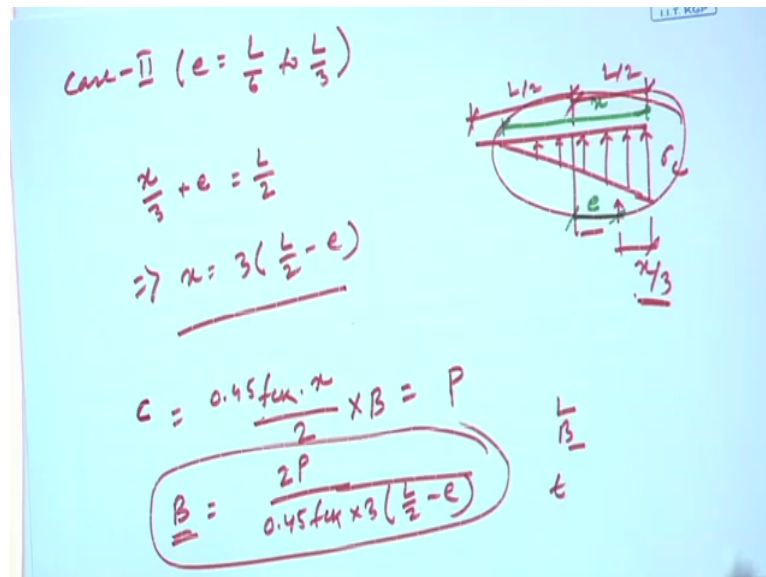 I.I.T. KGP
Case-II (e = L/6 to L/3)
L/2 L/2
x
x/3 + e = L/2
σc
e
x/3
=> x = 3(L/2 - e)
C = 0.45fck.x/2 × B = P
L
B
B = 2P/0.45fck×3(L/2 - e)
t